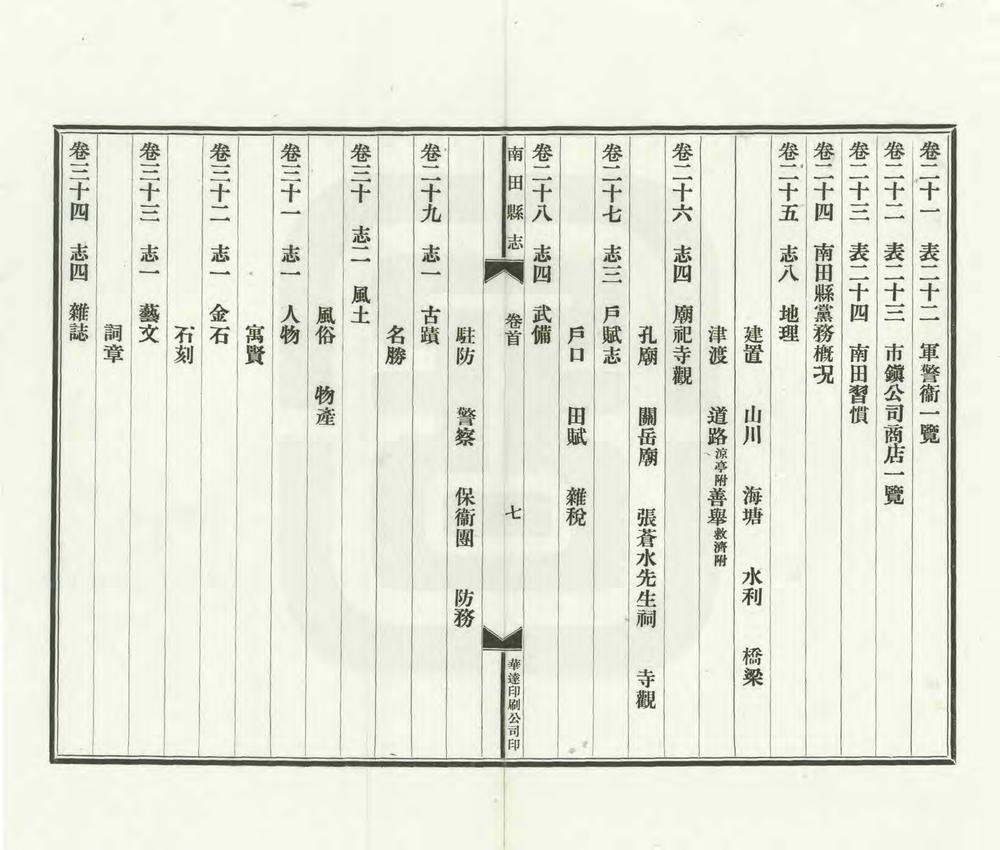 卷二十一 表二十二 軍警衞一覽
卷二十二 表二十三 市鎭公司商店一覽
卷二十三 表二十四 南田習慣
卷二十四 南田縣黨務槪況
卷二十五 志八 地理
建置 山川 海塘 水利 橋梁
津渡 道路涼亭附善舉救濟附
卷二十六 志四 廟祀寺觀
孔廟 關岳廟 張蒼水先生祠 寺觀
卷二十七 志三 戶賦志
戶口 田賦 雜稅
卷二十八 志四 武備
南田縣志 卷首 七 華達印刷公司印
駐防 警察 保衞團 防務
卷二十九 志一 古蹟
名勝
卷三十 志二 風土
風俗 物產
卷三十一 志一 人物
寓賢
卷三十二 志一 金石
石刻
卷三十三 志一 藝文
詞章
卷三十四 志四 雜誌